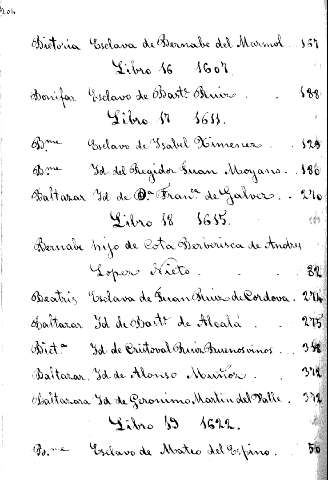 204
Victoria Esclava de Bernabe del Marmol . 167
Libro 16 1607.
Bonifaz Esclavo de Bart.e Ruiz . . . 188
Libro 17 1611.
B.me Esclavo de Isabel Ximenez . . 129
B.me Id del Regidor Juan Moyano . 186
Baltazar Id de D.a Fran.ca de Galvez . 270
Libro 18 1615.
Bernabe hijo de Cota Berberisca de Andres
Lopez Nieto . . . . 82
Beatris Esclava de Juan Ruiz de Cordova . 274
Baltazar Id de Bart.e de Alcalá . . 275
Vict.a Id de Cristoval Ruiz Buenosvinos . 358
Baltazar Id de Alonso Muñoz . . 372
Baltazara Id de Geronimo Martin del Valle . 372
Libro 19 1622.
B.me Esclavo de Mateo del Espino . 50